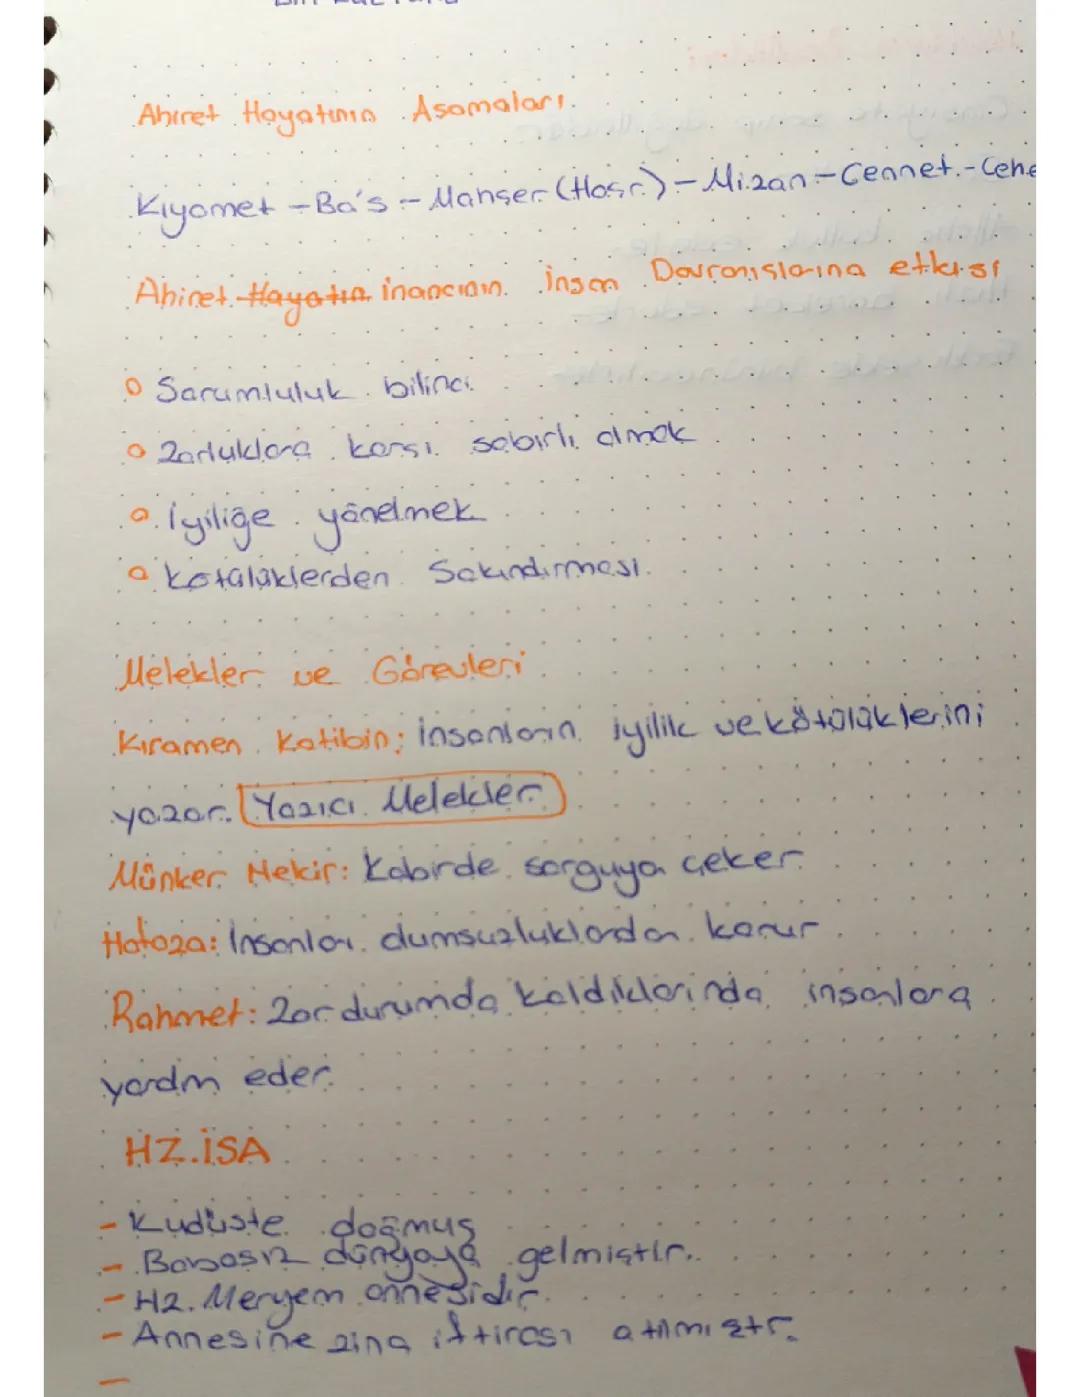 Ahiret Hayatının Aşamaları.
Kıyamet - Ba's - Mahşer (Haşr) - Mizan - Cennet - Cehe
Ahiret Hayatın inancının İnsan Davranışlarına etkisi
o Sorumluluk bilinci
o Zorluklara karşı sabırlı olmak
o İyiliğe yönelmek
o Kötülüklerden Sakındırması.
Melekler ve Görevleri
Kiramen Katibin; insanların iyilik ve kötülüklerini
yazar. Yazıcı Melekler
Münker Nekir: Kabirde sorguya çeker
Hafaza: İnsanları dumsuzluklardan korur
Rahmet: Zor durumda kaldıklarında insanlara
yardm eder.
HZ.İSA
- Kudüste doğmuş
- Babasız dünyaya gelmiştir.
- Hz. Meryem annesidir.
- Annesine zina iftirası atılmıştr.
-